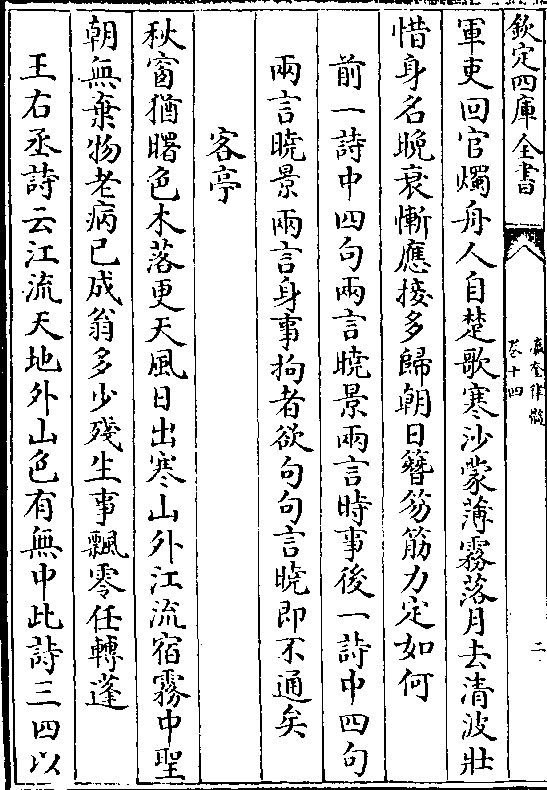 欽定四庫全書
瀛奎律髓
卷十四
二
軍吏回官燭舟人自楚歌寒沙蒙薄霧落月去清波壯
惜身名晚衰慚應接多歸朝日簪笏筋力定如何
前一詩中四句兩言曉景兩言時事後一詩中四句
兩言曉景兩言身事拘者欲句句言曉即不通矣
客亭
秋窗猶曙色木落更天風日出寒山外江流宿霧中聖
朝無棄物老病已成翁多少殘生事飄零任轉蓬
王右丞詩云江流天地外山色有無中此詩三四以